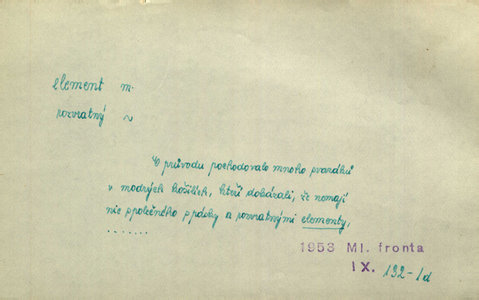 element m.
rozvratný ~
V průvodu pochodovalo mnoho svazáků
v modrých košilích, kteří dokázali, že nemají
nic společného s pásky a rozvratnými elementy,
.......
1953 Ml. fronta
IX. 192-1d